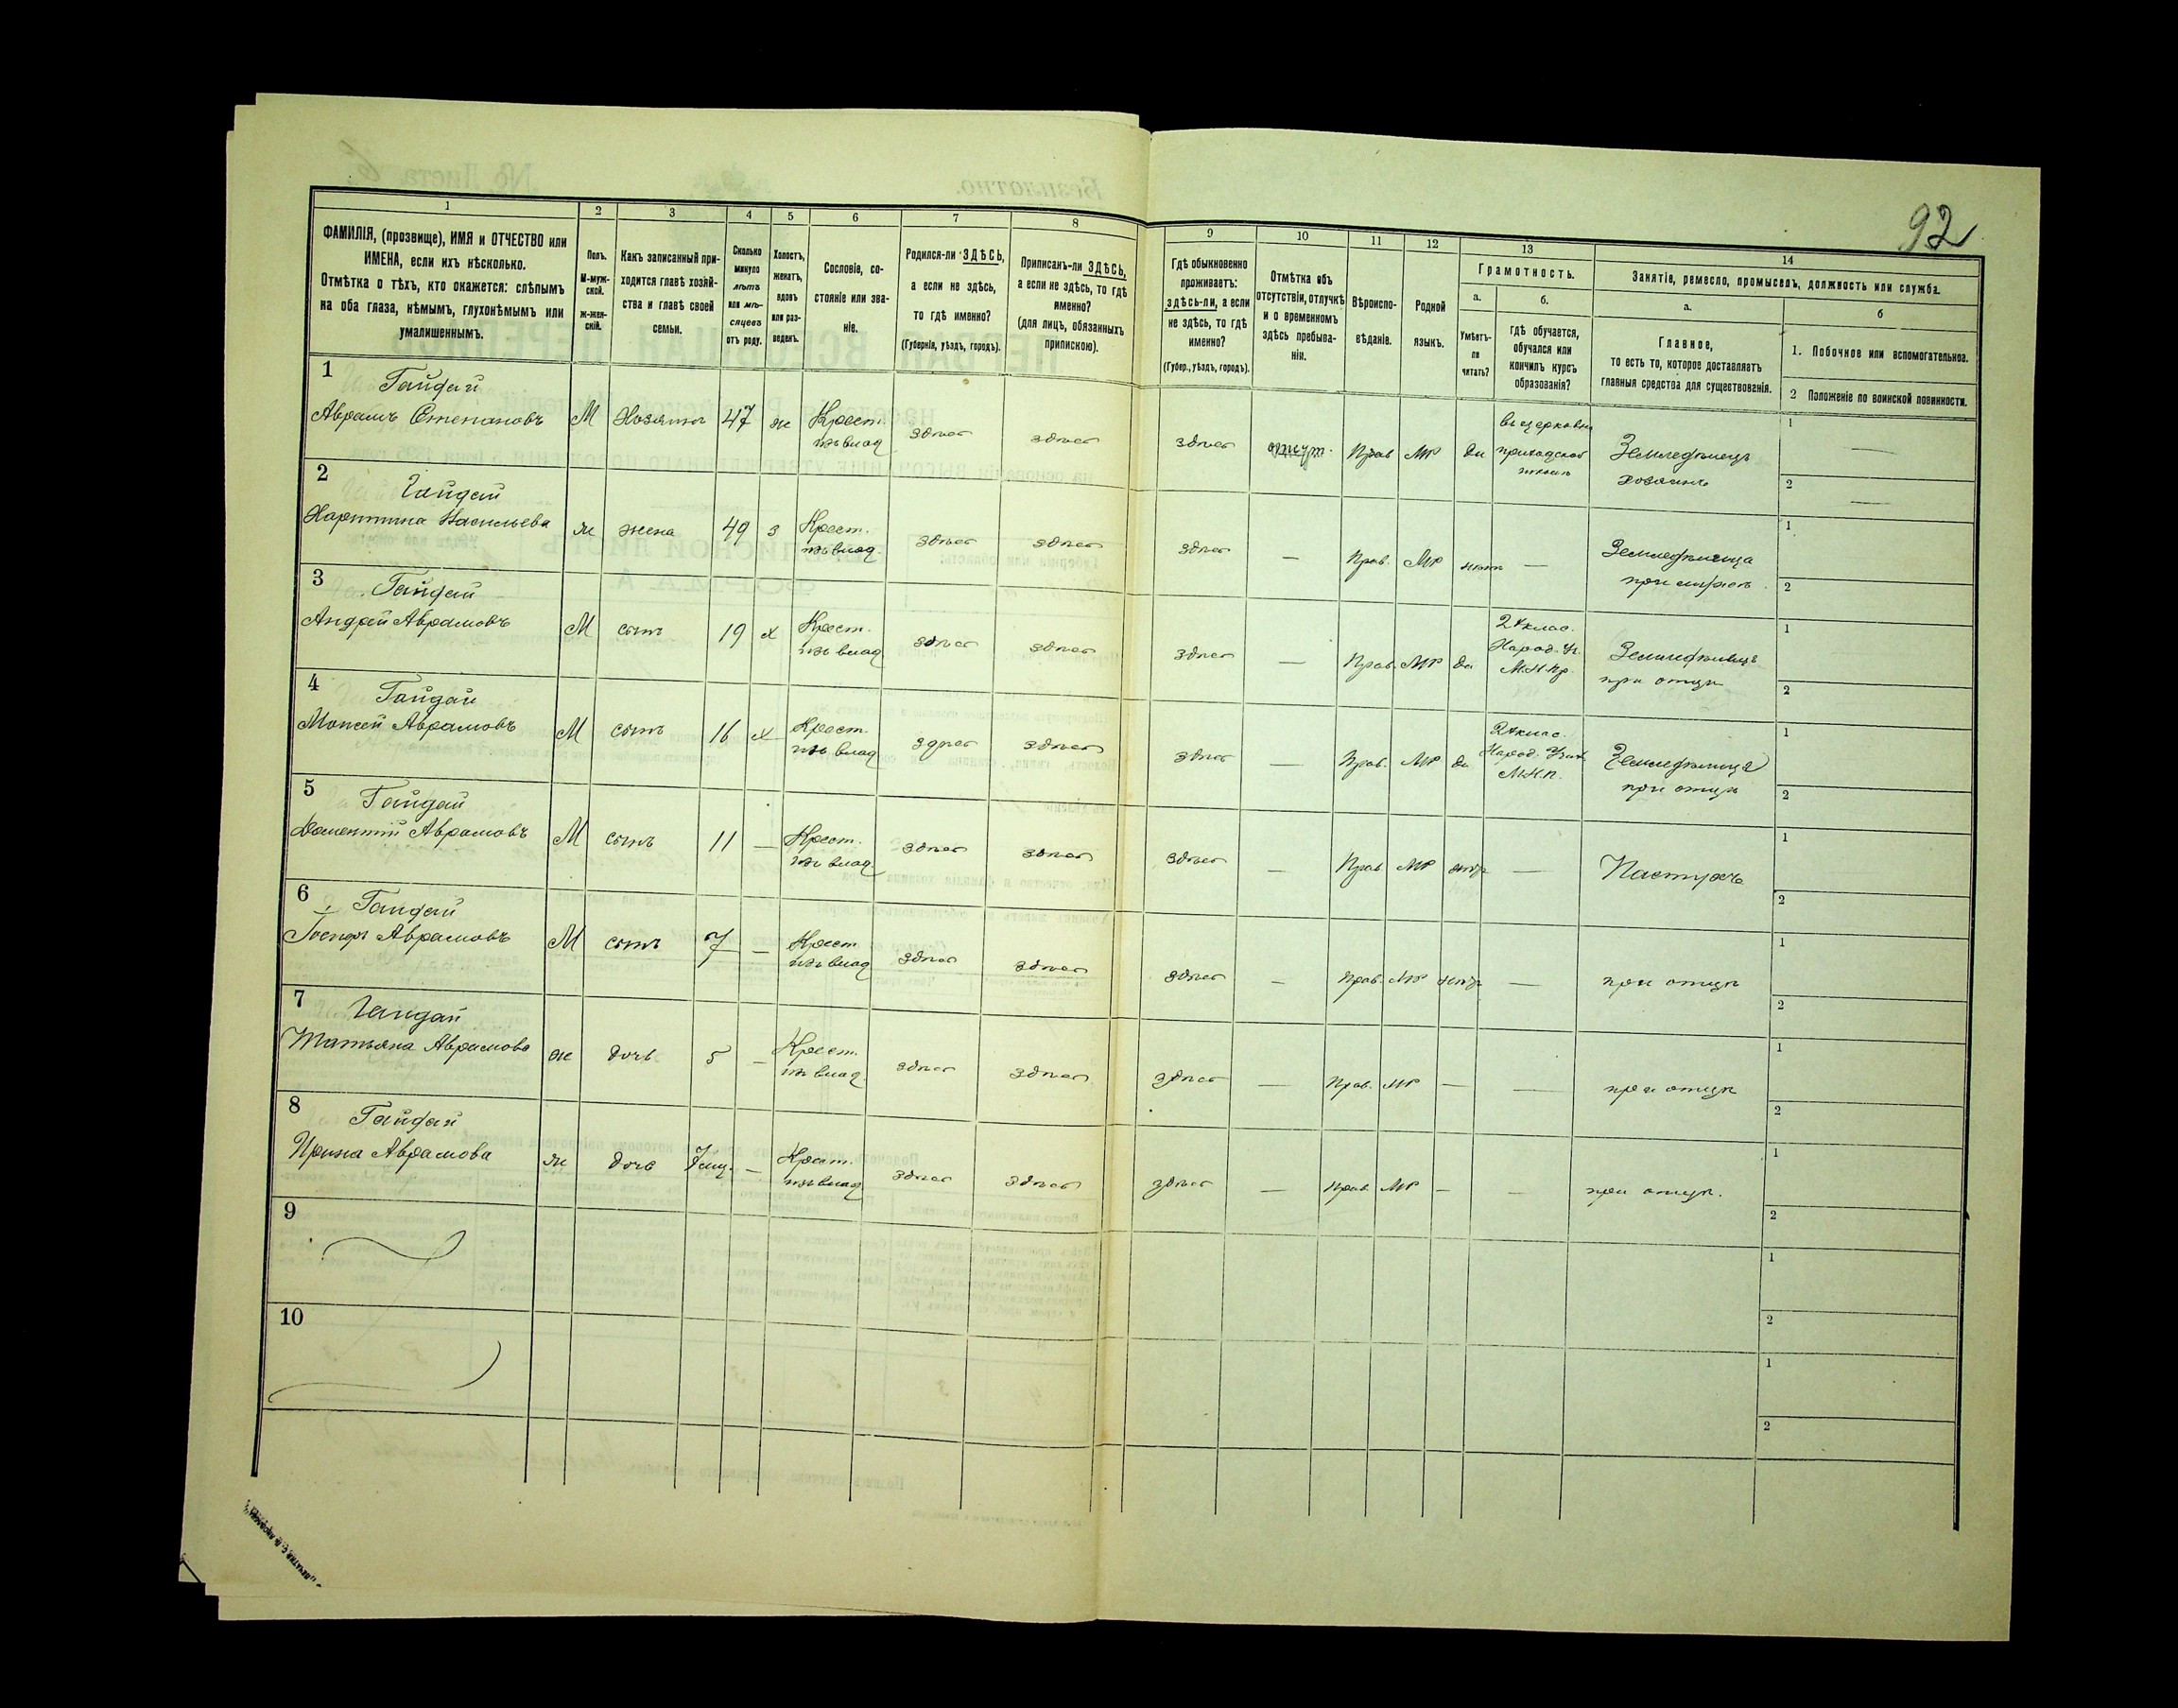 92
1 2 3 4 5 6 7 8 9 10 11 12 13 14
ФАМИЛІЯ, (прозвище), ИМЯ и ОТЧЕСТВО или
ИМЕНА, если ихъ нѣсколько.
Отмѣтка о тѣхъ, кто окажется: слѣпымъ
на оба глаза, нѣмымъ, глухонѣмымъ или
умалишеннымъ.
Полъ.
М-муж-
ской.
ж-жен-
скій.
Какъ записанный при-
ходится главѣ хозяй-
ства и главѣ своей
семьи.
Сколько
минуло
лѣтъ
или мѣ-
сяцевъ
отъ роду.
Холостъ,
женатъ,
вдовъ
или раз-
веденъ.
Сословіе, со-
стояніе или зва-
ніе.
Родился-ли ЗДѢСЬ,
а если не здѣсь,
то гдѣ именно?
(Губернія, уѣздъ, городъ).
Приписанъ-ли ЗДѢСЬ,
а если не здѣсь, то гдѣ
именно?
(для лицъ, обязанныхъ
припискою).
Гдѣ обыкновенно
проживаетъ:
здѣсь-ли, а если
не здѣсь, то гдѣ
именно?
(Губер., уѣздъ, городъ).
Отмѣтка объ
отсутствіи, отлучкѣ
и о временномъ
здѣсь пребыва-
ніи.
Вѣроиспо-
вѣданіе.
Родной
языкъ.
Грамотность.
а.
Умѣетъ-
ли
читать?
б.
гдѣ обучается,
обучался или
кончилъ курсъ
образованія?
Занятіе, ремесло, промыселъ, должность или служба.
а.
Главное,
то есть то, которое доставляетъ
главныя средства для существованія.
б
1. Побочное или вспомогательное.
2 Положеніе по воинской повинности.
1 Гайдай
Аврамъ Степановъ М Хозяинъ 47 ж Крест.
изъ влад здѣсь здѣсь здѣсь отсут. Прав МР да
въ церковно
приходской
школѣ
Земледѣлецъ
хозяинъ
1 —
2 —
2 Гайдай
Харитина Васильева ж жена 49 з Крест.
изъ влад. здѣсь здѣсь здѣсь — Прав. МР нѣтъ —
Земледѣлица
при мужѣ
1
2
3 Гайдай
Андрей Аврамовъ М сынъ 19 х Крест.
изъ влад здѣсь здѣсь здѣсь — Прав. МР да
2хклас.
Народ. Уч.
М.Н.Пр
при отцѣ
1
2
4 Гайдай
Моисей Аврамовъ М сынъ 16 х Крест.
изъ влад здѣсь здѣсь здѣсь — Прав. МР да
2хклас.
Народ. Учил.
М.Н.П.
при отцѣ
1
2
5 Гайдай
Аврамовъ М сынъ 11 — Крест.
изъ влад здѣсь здѣсь здѣсь — Прав МР нѣтъ — Пастухъ
1
2
6 Гайдай
Іосифъ Аврамовъ М сынъ 7 — Крест
изъ влад здѣсь здѣсь здѣсь — Прав. МР нѣтъ — при отцѣ
1
2
7 Гайдай
Татьяна Аврамова ж дочь 5 — Крест.
изъ влад. здѣсь здѣсь здѣсь — Прав. МР — — при отцѣ
1
2
8 Гайдай
Ирина Аврамова ж дочь 7 мц. — Крест.
изъ влад здѣсь здѣсь здѣсь — Прав. МР — — при отцѣ.
1
2
9
1
2
10
1
2